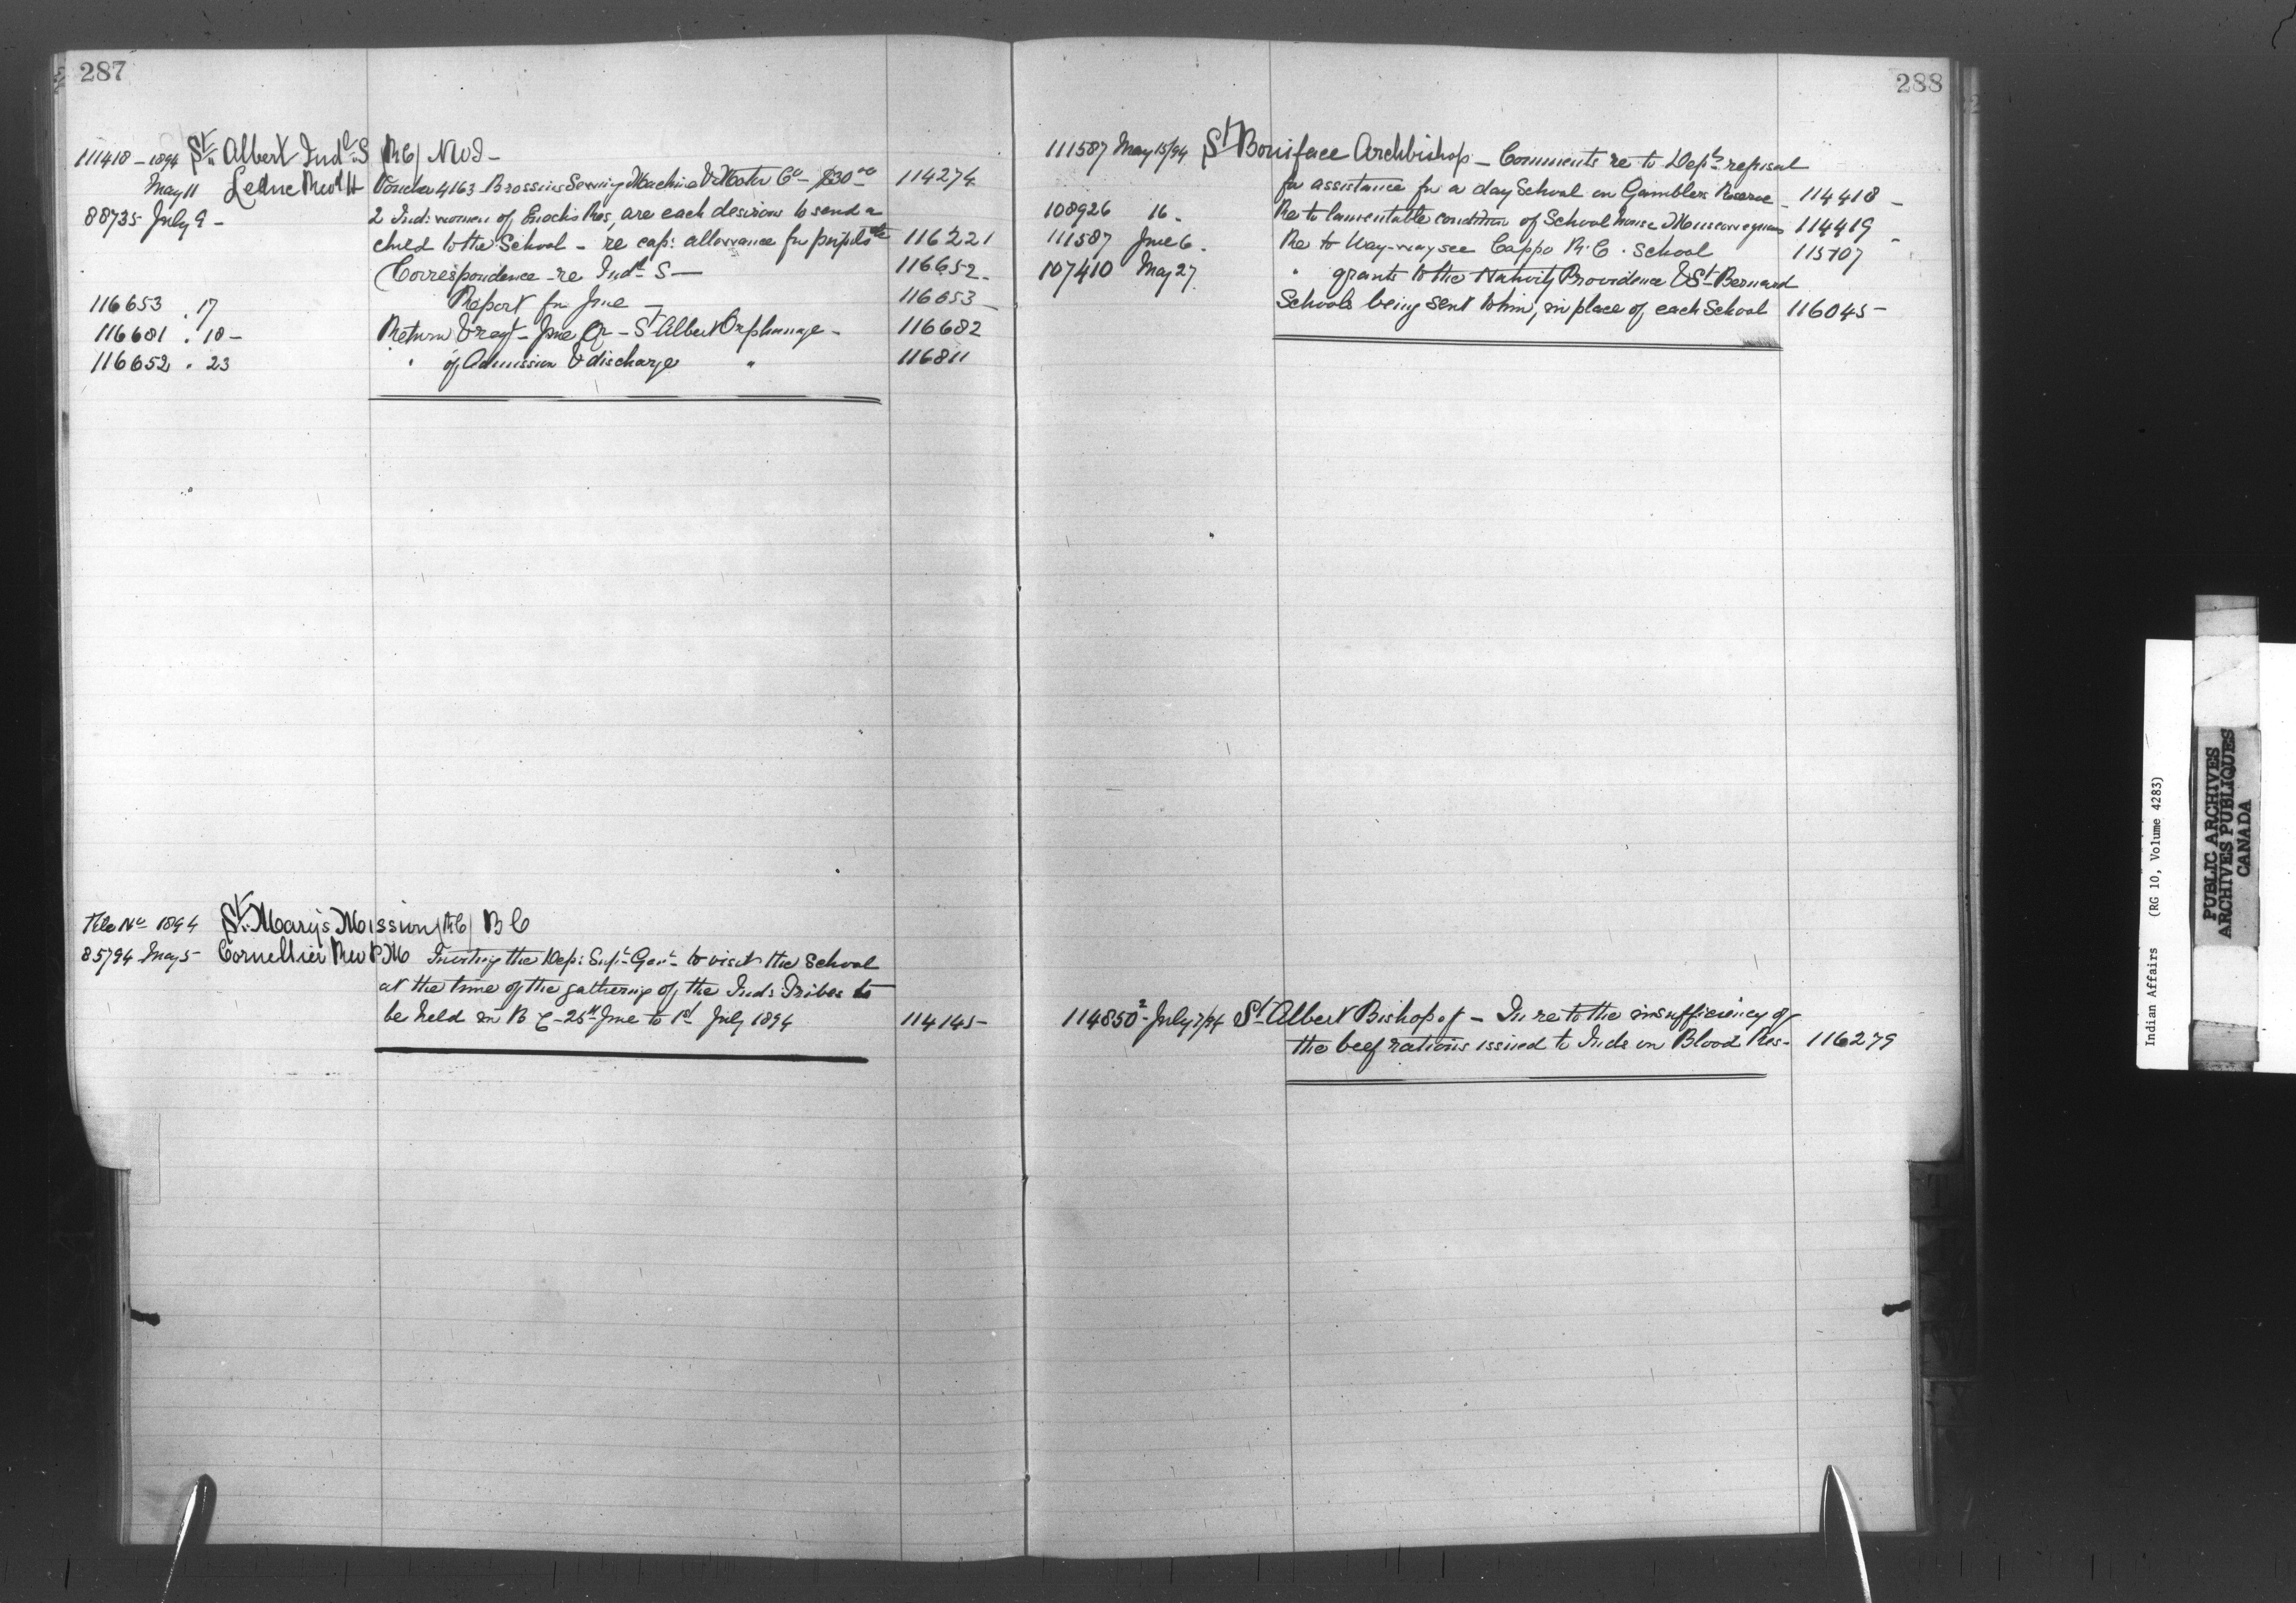 287
111418 - 1894 St. Albert Indl. S RC NWT -
May 11 Leduc Revd H Voucher 4163 Brossius Sewing Machine & Motor Co - $30.00 114274
88735 July 9 - 2 Ind: women of Enochs Res, are each desirous to send a
child to the School - re cap: allowance for pupils etc 116221
Correspondence - re Indl S - 116652 -
116653 . 17 Report for June - 116653 -
116681 . 18 - Return & regt - June Qr - St Albert Orphanage - 116682
116652 . 23 " of Admission & discharge " 116811
File No 1894 St. Mary's Mission RC BC
85794 May 5 - Cornellier Rev P.M Inviting the Dep: Supt. Genl. to visit the School
at the time of the gathering of the Ind: Tribes to
be held in B C - 25th June to 1st July 1894 114145 -
288
111587 May 15/94 St Boniface Archbishop - Comments re to Dept's refusal
for assistance for a day School on Gamblers Reserve - 114418 -
108926 16 - Re to lamentable condition of School house 114419 -
111587 June 6 . Re to Way-way-see Cappo R. C. School 115107
107410 May 27 " grants to the Nativity Providence & St Bernard
Schools being sent to him, in place of each School 116045 -
114850-2 - July 7/94 St Albert Bishop of - In re to the insufficiency of
the beef rations issued to Inds on Blood Res - 116279
Indian Affairs (RG 10, Volume 4283)
PUBLIC ARCHIVES
ARCHIVES PUBLIQUES
CANADA